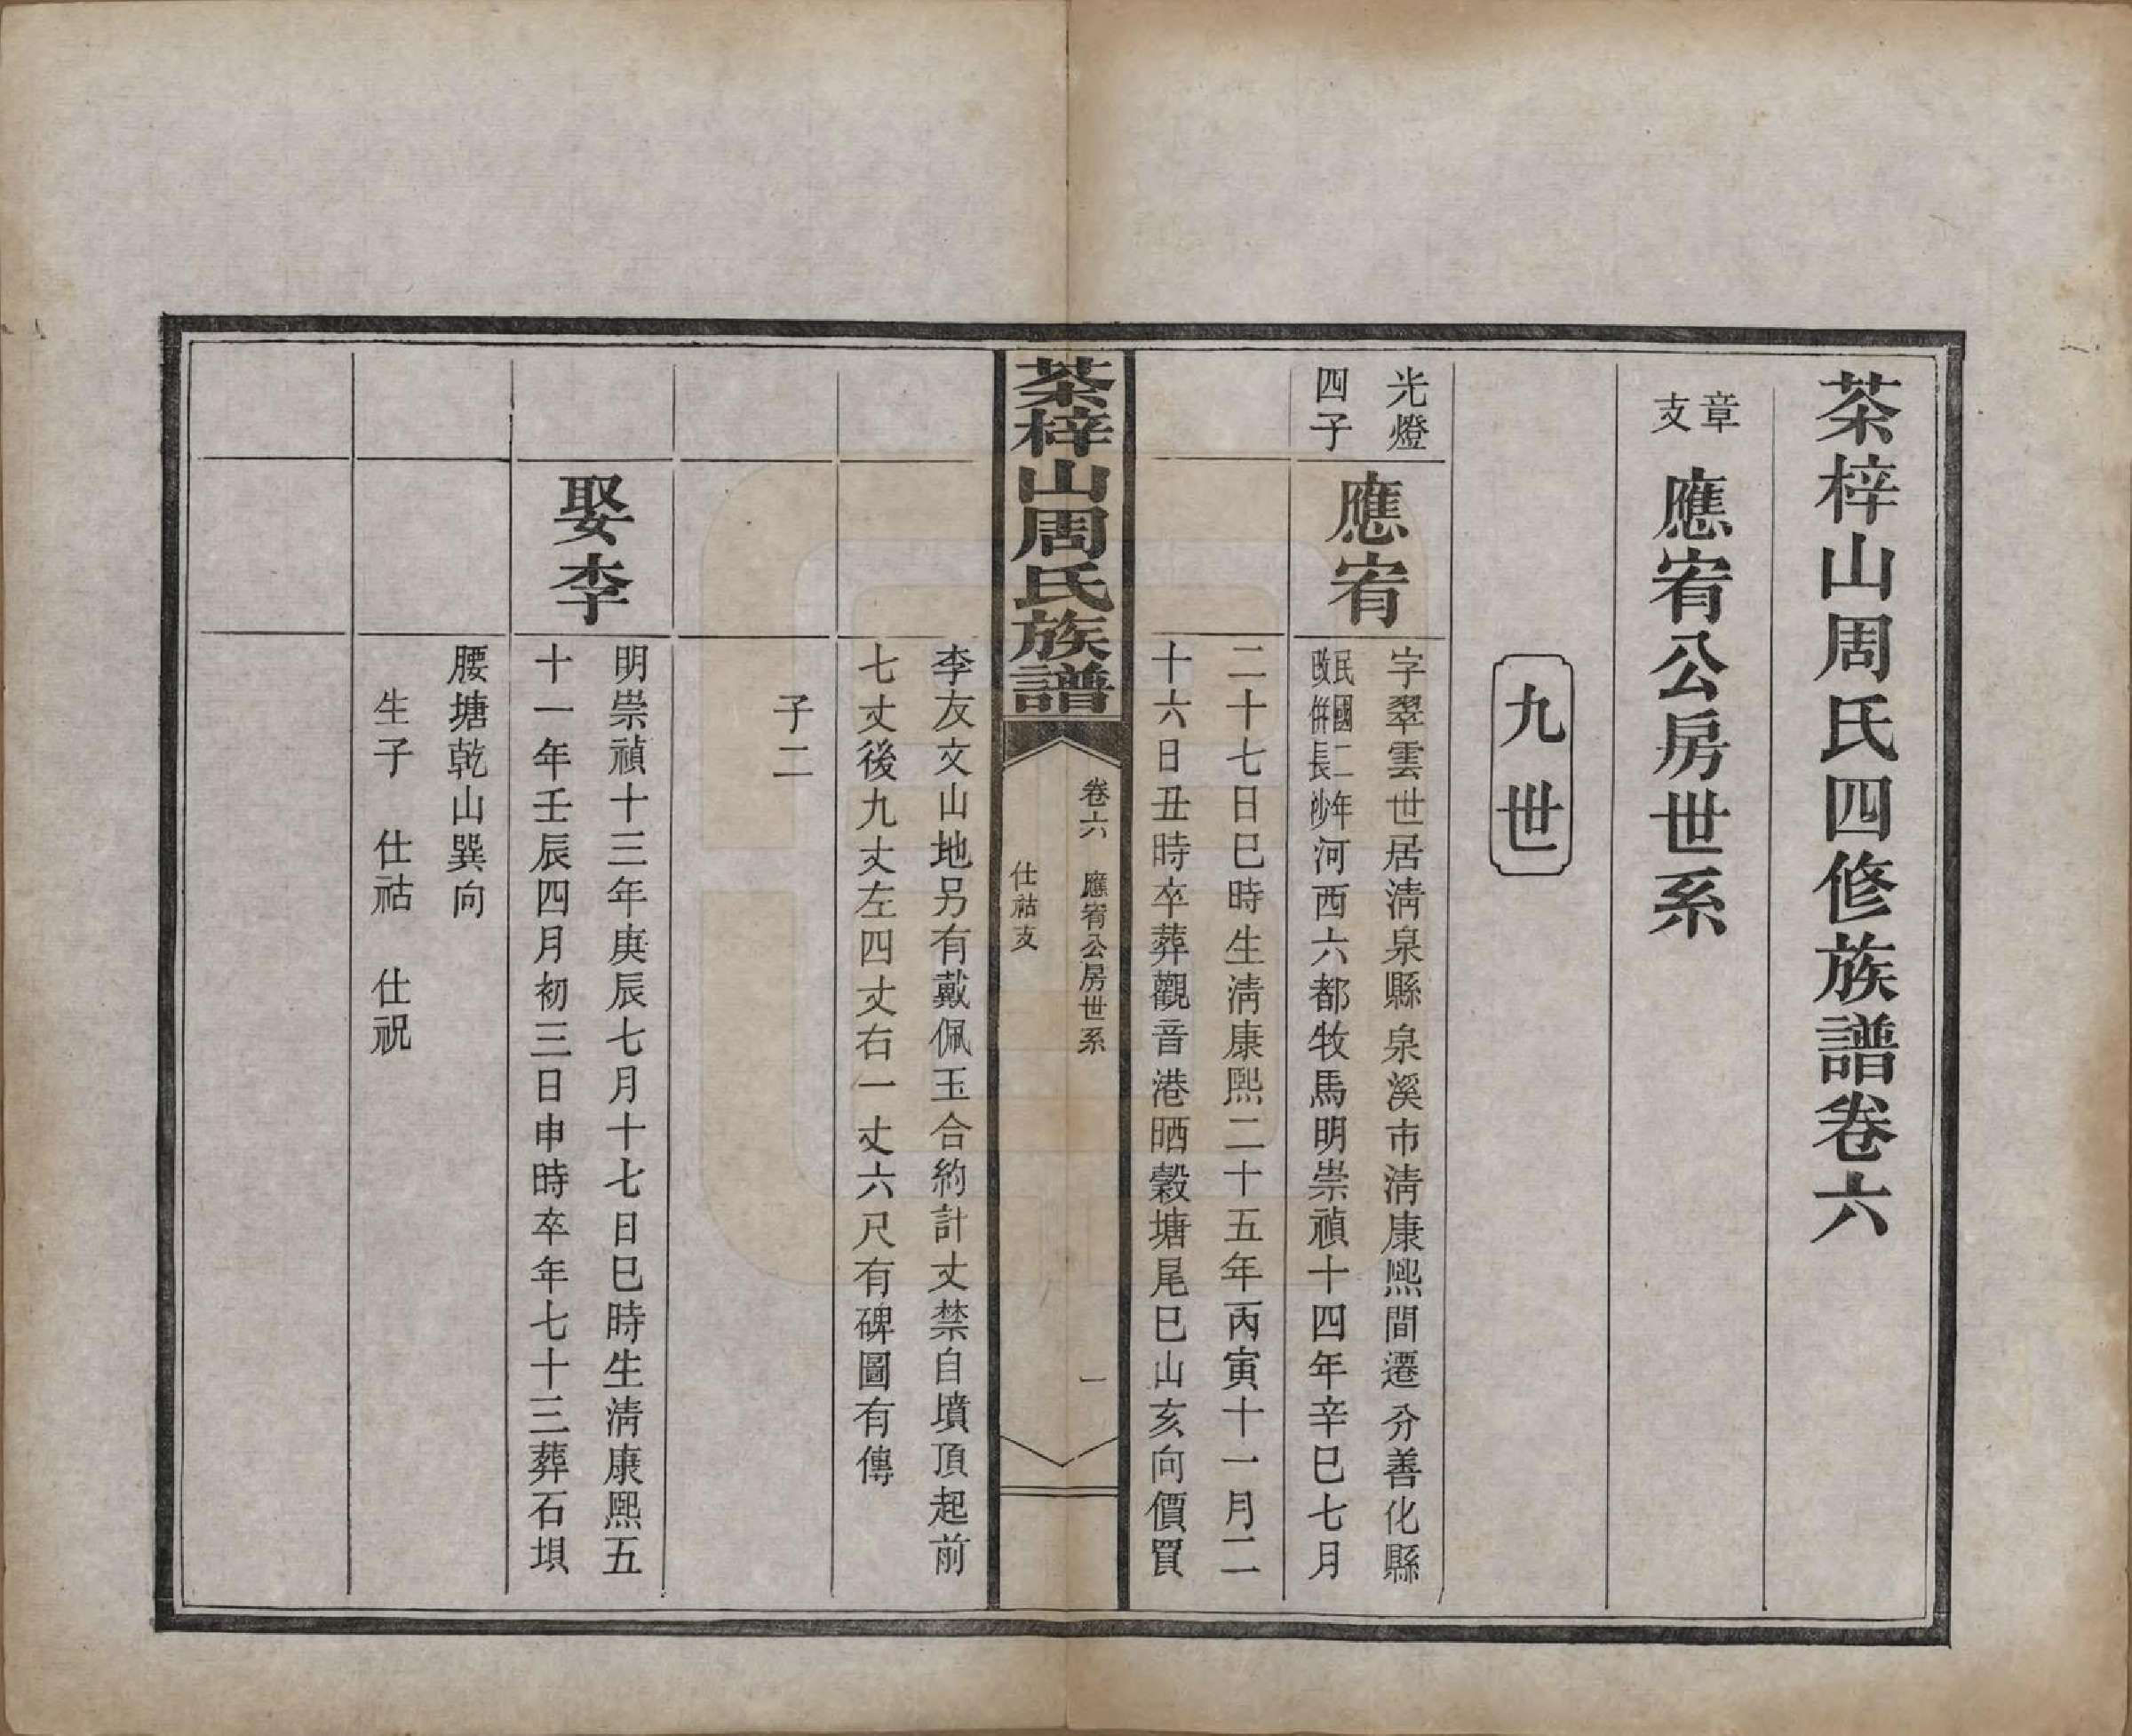 茶梓山周氏四修族譜卷六
章支 應宥公房世系
九世
光燈
四子
應宥
字翠雲世居淸泉縣泉溪市淸康熙間遷分善化縣
民國二年
改併長沙
河西六都牧馬明崇禎十四年辛巳七月
二十七日巳時生淸康熙二十五年丙寅十一月二
十六日丑時卒葬觀音港晒穀塘尾巳山亥向價買
茶梓山周氏族譜
卷六 應宥公房世系 一
仕祜支
李友文山地另有戴佩玉合約計丈禁自墳頂起前
七丈後九丈左四丈右一丈六尺有碑圖有傳
子二
娶李
明崇禎十三年庚辰七月十七日巳時生淸康熙五
十一年壬辰四月初三日申時卒年七十三葬石垻
腰塘乾山巽向
生子 仕祜 仕祝